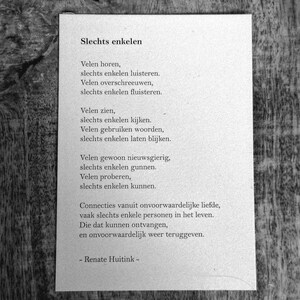 Slechts enkelen
Velen horen,
slechts enkelen luisteren.
Velen overschreeuwen,
slechts enkelen fluisteren.
Velen zien,
slechts enkelen kijken.
Velen gebruiken woorden,
slechts enkelen laten blijken.
Velen gewoon nieuwsgierig,
slechts enkelen gunnen.
Velen proberen,
slechts enkelen kunnen.
Connecties vanuit onvoorwaardelijke liefde,
vaak slechts enkele personen in het leven.
Die dat kunnen ontvangen,
en onvoorwaardelijk weer teruggeven.
- Renate Huitink -